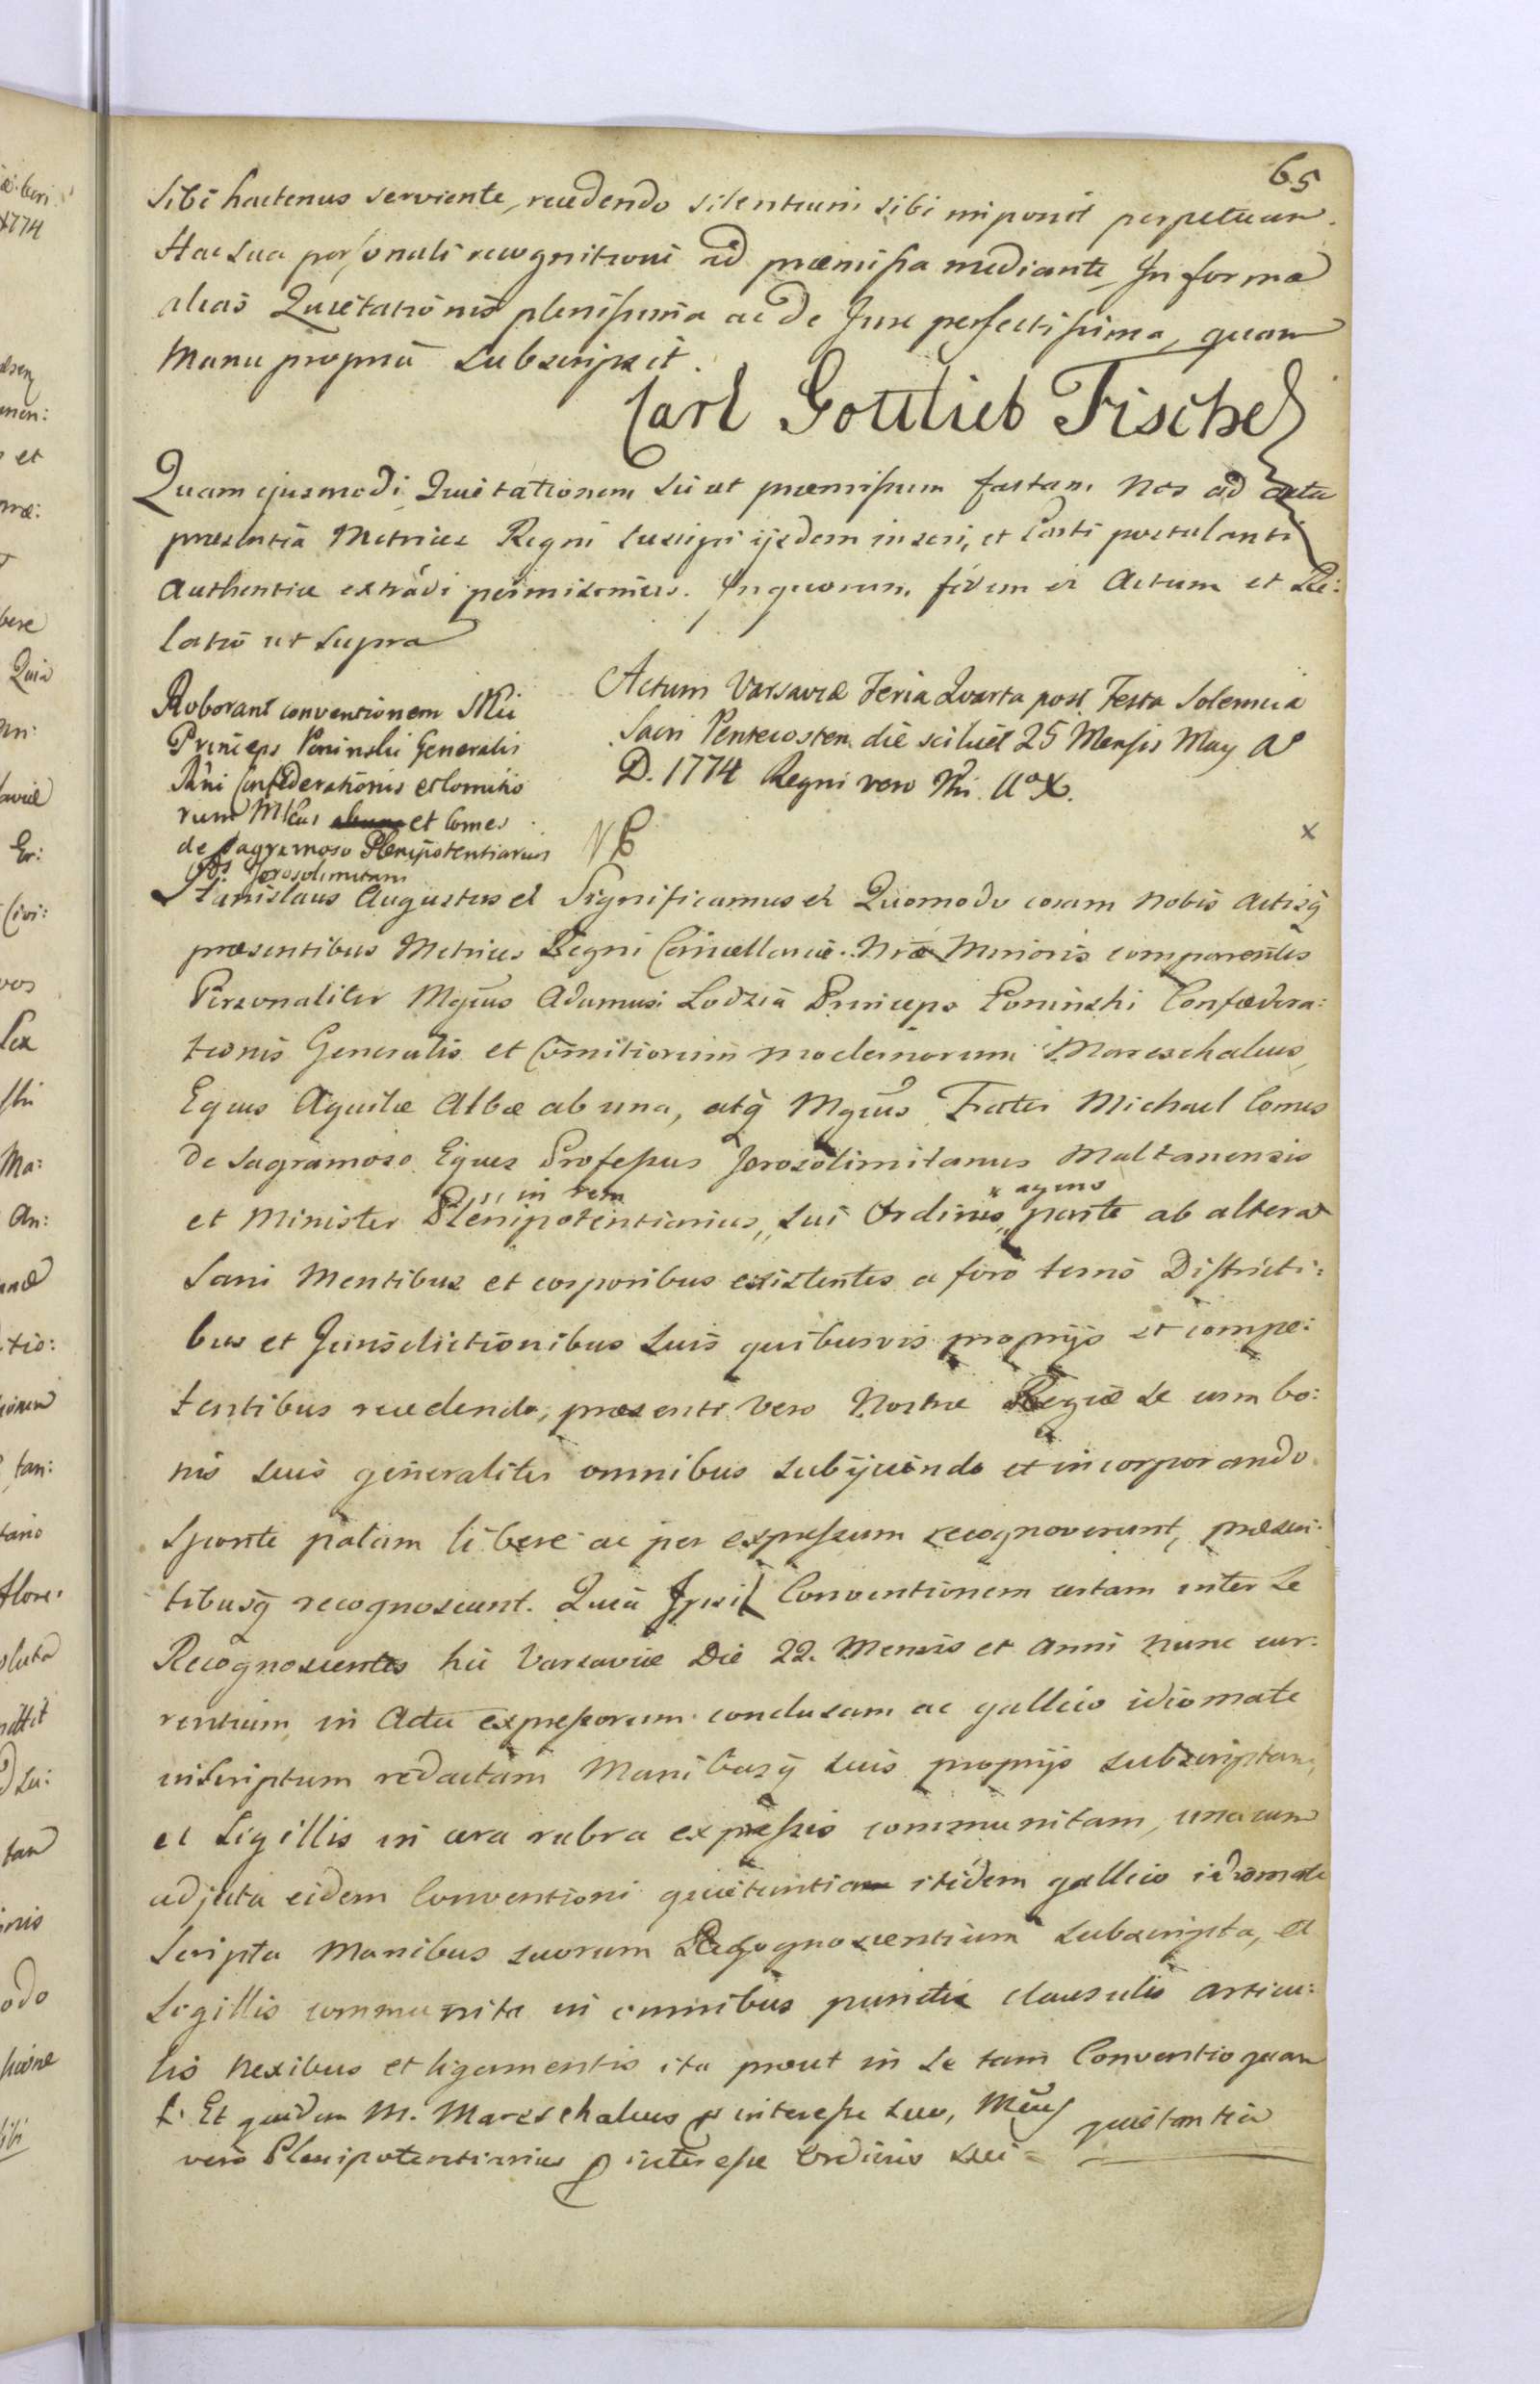 65
Sibi hactenus serviente, recedendo silentium sibi imponit perpetuum.
Hac sua personali recognitione ad præmissa mediante, In forma
alias Quietationis plenissima ac de Jure perfectissima, quam
Manu propria subscripsit.
Carl Gottlieb Fischer
Quam ejusmodi Quietationem sicut præmissum factam Nos ad acta
præsentia Metrices Regni suscipi ijsdem inseri, et Parti postulanti
Authentice extradi permisimus. In quorum fidem et Actum et Re:
latio ut supra
Roborant conventionem Mci
Princeps Poninski Generalis
Rñi Confæderationis et Comitio
rum Mlcus et Comes
de Sagramoso Plenipotentiarius
Ords Jerosolimitani
Actum Varsaviæ Feria Quarta post Festa Solemnia
Sacri Pentecosten die scilicet 25 Mensis May Ao
D. 1774 Regni vero Nri Ao X.
NB
x
Stanislaus Augustus et Significamus et Quomodo coram Nobis Actisq
præsentibus Metrices Regni Cancellariæ Nræ Minoris comparentes
Personaliter Mgcus Adamus Lodzia Princeps Poninski Confædera:
tionis Generalis et Comitiorum modernorum Mareschalcus,
Eques Aquilæ Albæ ab una, atq Mgcus Frater Michael Comes
de Sagramoso Eques Professus Jerosolimitanus Maltanensis
in rem agens
et Minister Plenipotentiarius, sui Ordinis parte ab altera
Sani Mentibus et corporibus existentes a foro terris Districti:
bus et Jurisdictionibus suis quibusvis proprijs et compe:
tentibus recedendo, præsenti vero Nostræ Regiæ se cum bo:
nis suis generaliter omnibus subijciendo et incorporando
Sponte palam libere ac per expressum recognoverunt, præsen:
tibusq recognoscunt. Quia Ipsi Conventionem certam inter se
Recognoscentes hic Varsaviæ Die 22. Mensis et Anni nunc cur:
rentium in Actu expressorum conclusam ac gallico idiomate
inscriptum redactam Manibusq suis proprijs subscriptam,
et Sigillis in cera rubra expressis communitam, una cum
adjecta eidem Conventioni quietantia itidem gallico idiomate
Scripta Manibus suorum Recognoscentium subscripta, et
Sigillis communita in omnibus punctis clausulis articu:
lis nexibus et ligamentis ita prout in se tam Conventio quam
quietantia
Et quidem M. Mareschalcus p interesse suo, Mcus
vero Plenipotentiarius p interesse Ordinis sui